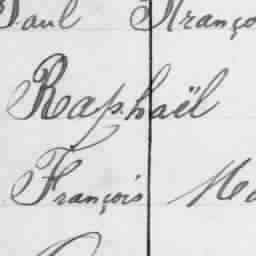 Paul Franço
Raphaël
François Ma